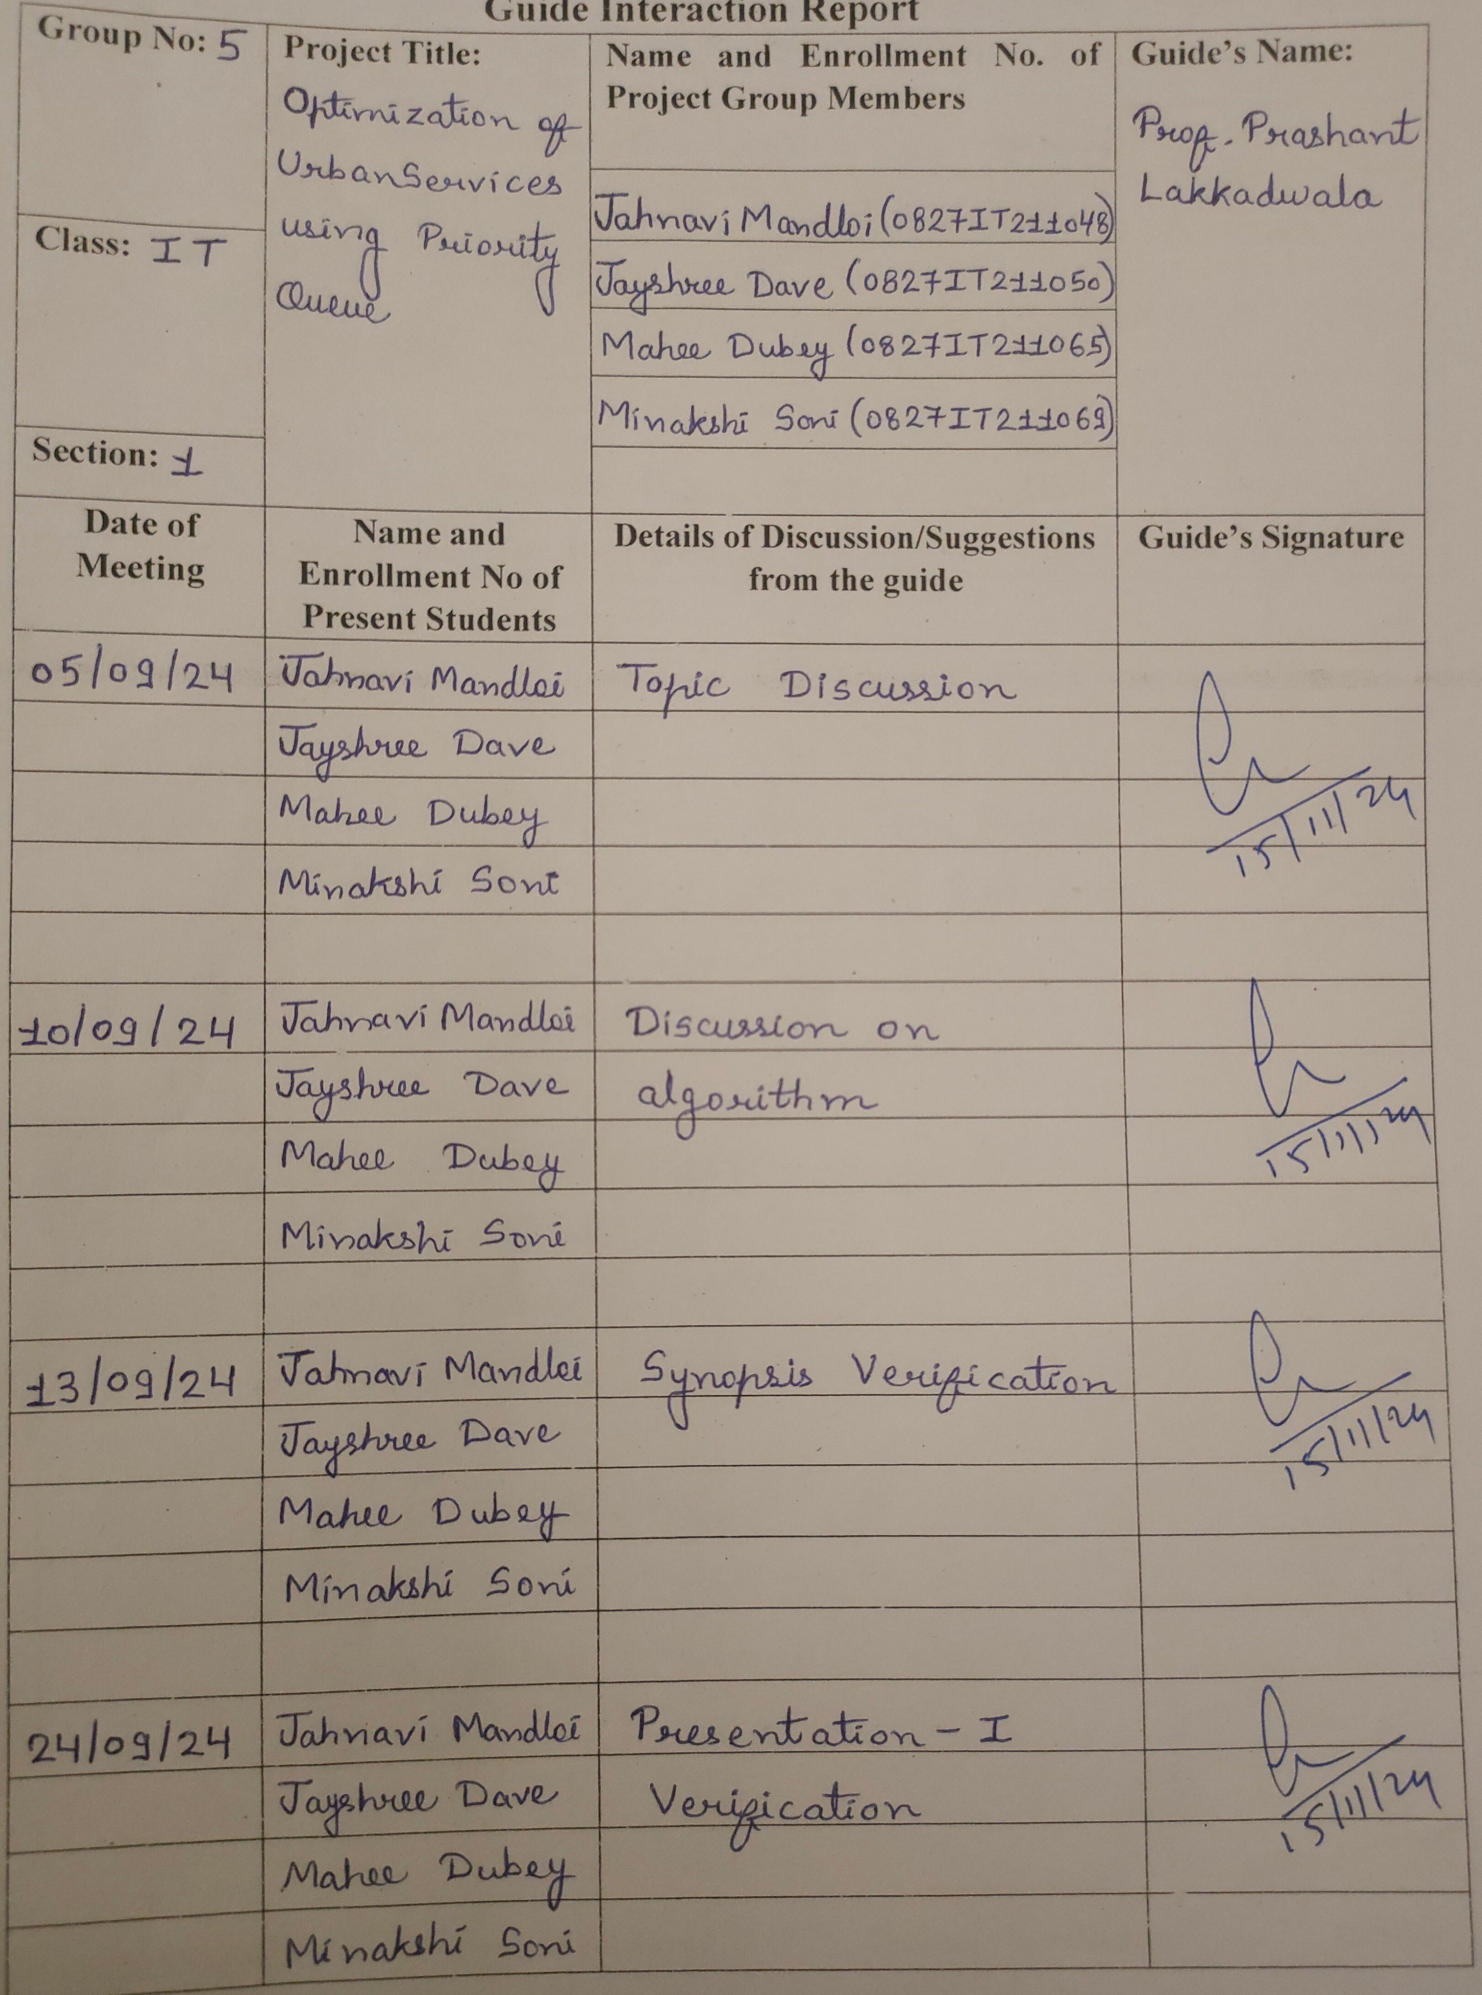 Guide Interaction Report
Group No: 5
Project Title:
Optimization of
Urban Services
using Priority
Queue
Name and Enrollment No. of
Project Group Members
Guide's Name:
Prof. Prashant
Lakkadwala
Jahnavi Mandloi (0827IT211048)
Class: IT
Jayshree Dave (0827IT211050)
Mahee Dubey (0827IT211065)
Minakshi Soni (0827IT211069)
Section: 1
Date of
Meeting
Name and
Enrollment No of
Present Students
Details of Discussion/Suggestions
from the guide
Guide's Signature
05/09/24 Jahnavi Mandloi Topic Discussion
Jayshree Dave
Mahee Dubey
15/11/24
Minakshi Soni
10/09/24 Jahnavi Mandloi Discussion on
Jayshree Dave algorithm
Mahee Dubey
15/11/24
Minakshi Soni
13/09/24 Jahnavi Mandloi Synopsis Verification
Jayshree Dave
15/11/24
Mahee Dubey
Minakshi Soni
24/09/24 Jahnavi Mandloi Presentation - I
Jayshree Dave Verification
15/11/24
Mahee Dubey
Minakshi Soni